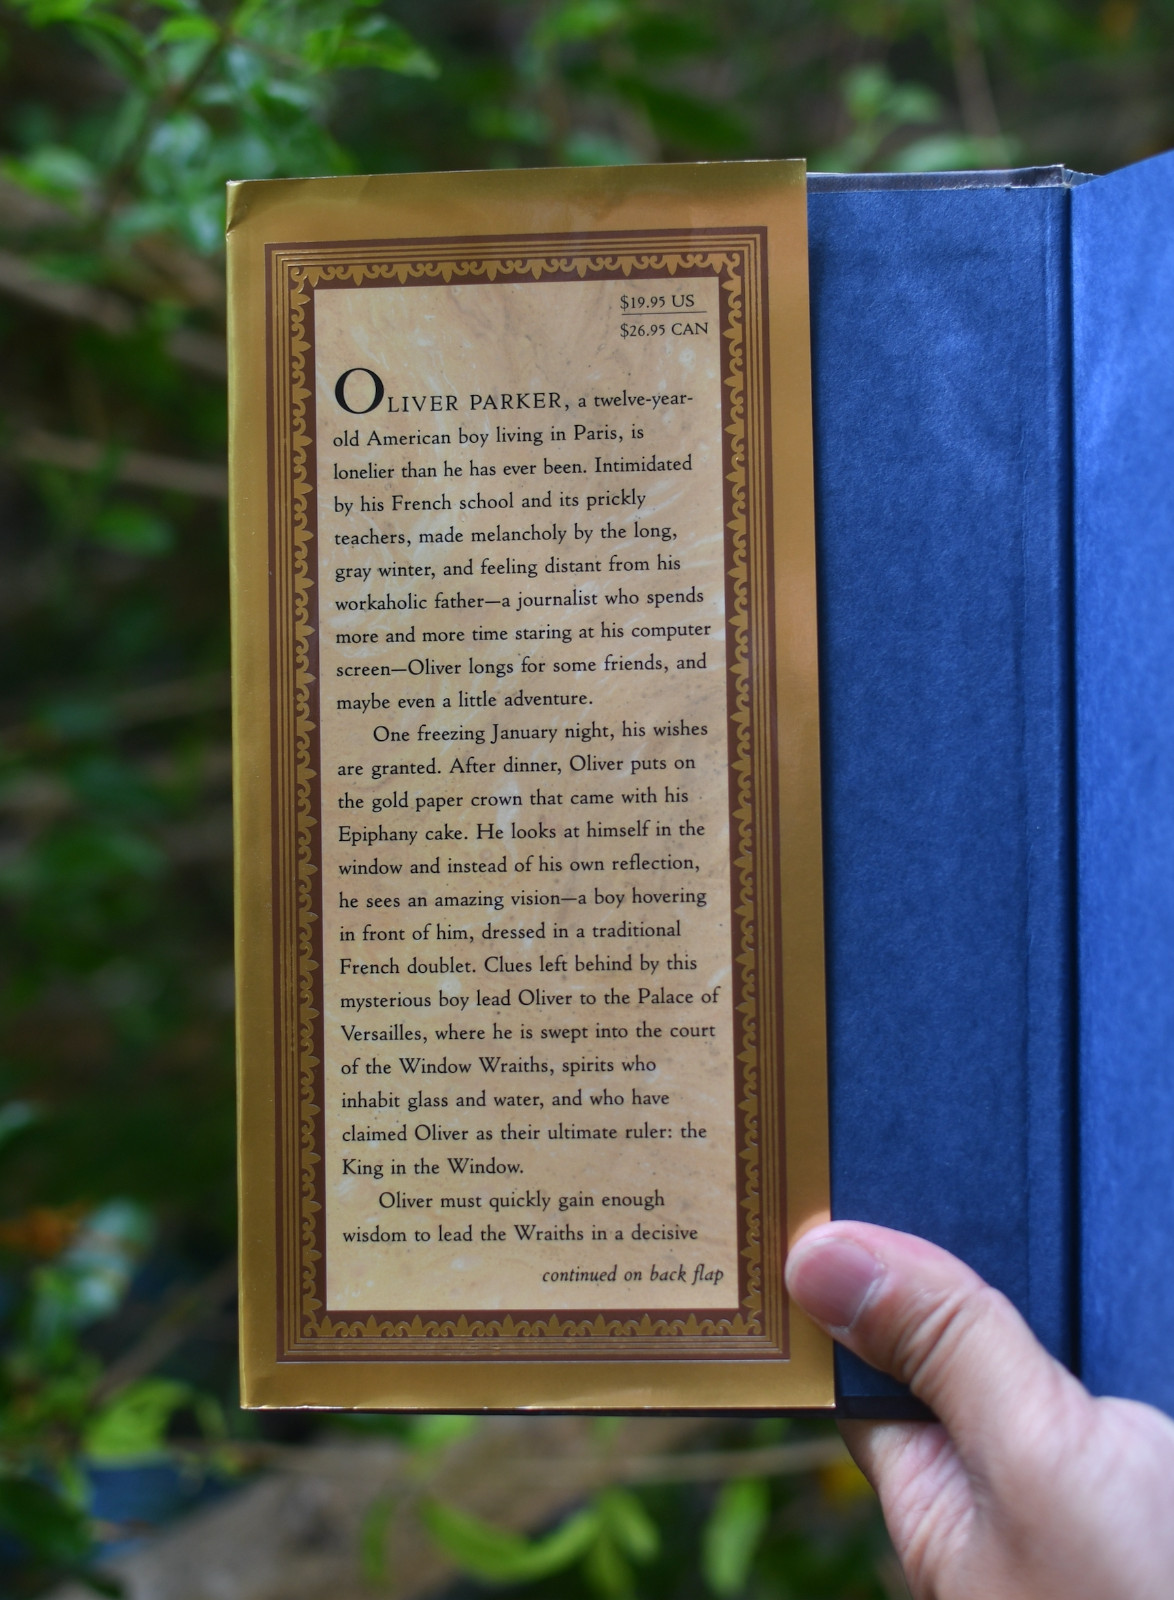 $19.95 US
$26.95 CAN
OLIVER PARKER, a twelve-year-
old American boy living in Paris, is
lonelier than he has ever been. Intimidated
by his French school and its prickly
teachers, made melancholy by the long,
gray winter, and feeling distant from his
workaholic father—a journalist who spends
more and more time staring at his computer
screen—Oliver longs for some friends, and
maybe even a little adventure.
One freezing January night, his wishes
are granted. After dinner, Oliver puts on
the gold paper crown that came with his
Epiphany cake. He looks at himself in the
window and instead of his own reflection,
he sees an amazing vision—a boy hovering
in front of him, dressed in a traditional
French doublet. Clues left behind by this
mysterious boy lead Oliver to the Palace of
Versailles, where he is swept into the court
of the Window Wraiths, spirits who
inhabit glass and water, and who have
claimed Oliver as their ultimate ruler: the
King in the Window.
Oliver must quickly gain enough
wisdom to lead the Wraiths in a decisive
continued on back flap